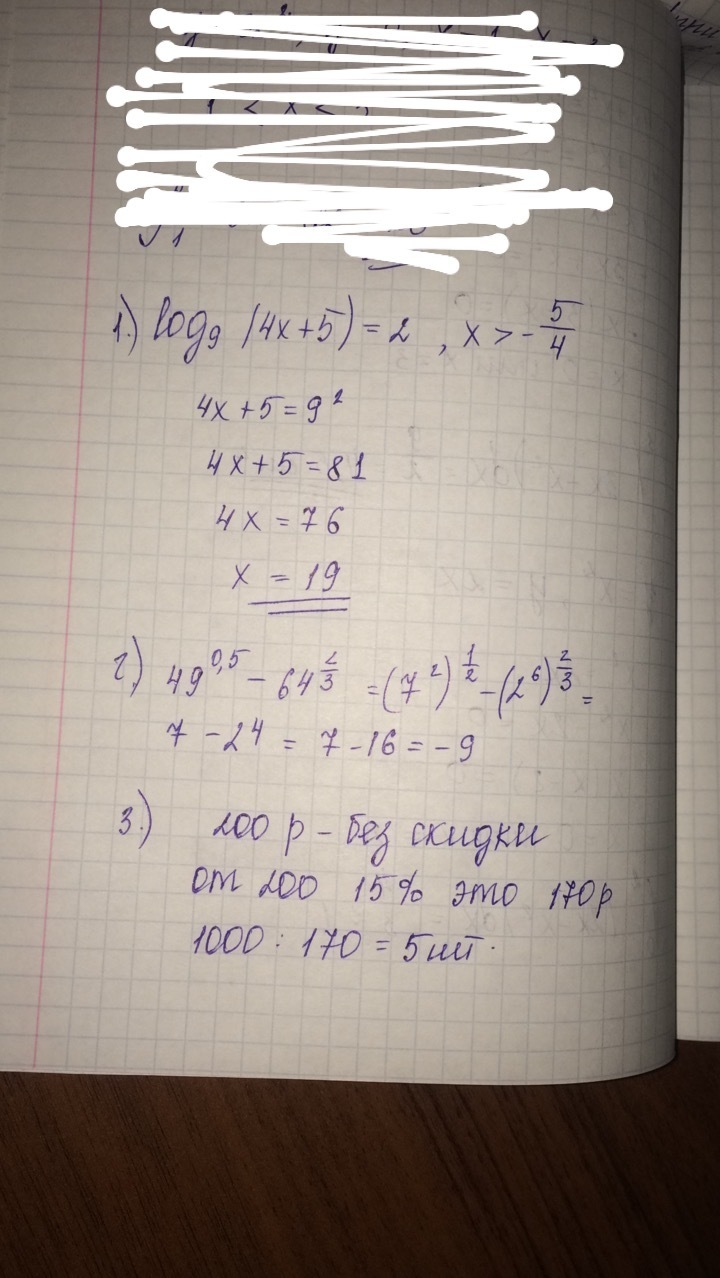 1 < x <
1.) log₉ (4x+5) = 2 , x > -5/4
4x+5=9²
4x+5=81
4x=76
x = 19
2.) 49^0,5 - 64^2/3 = (7²)^1/2 - (2⁶)^2/3 =
7 - 2⁴ = 7 - 16 = -9
3.) 200 р - без скидки
от 200 15% это 170р
1000 : 170 = 5шт.